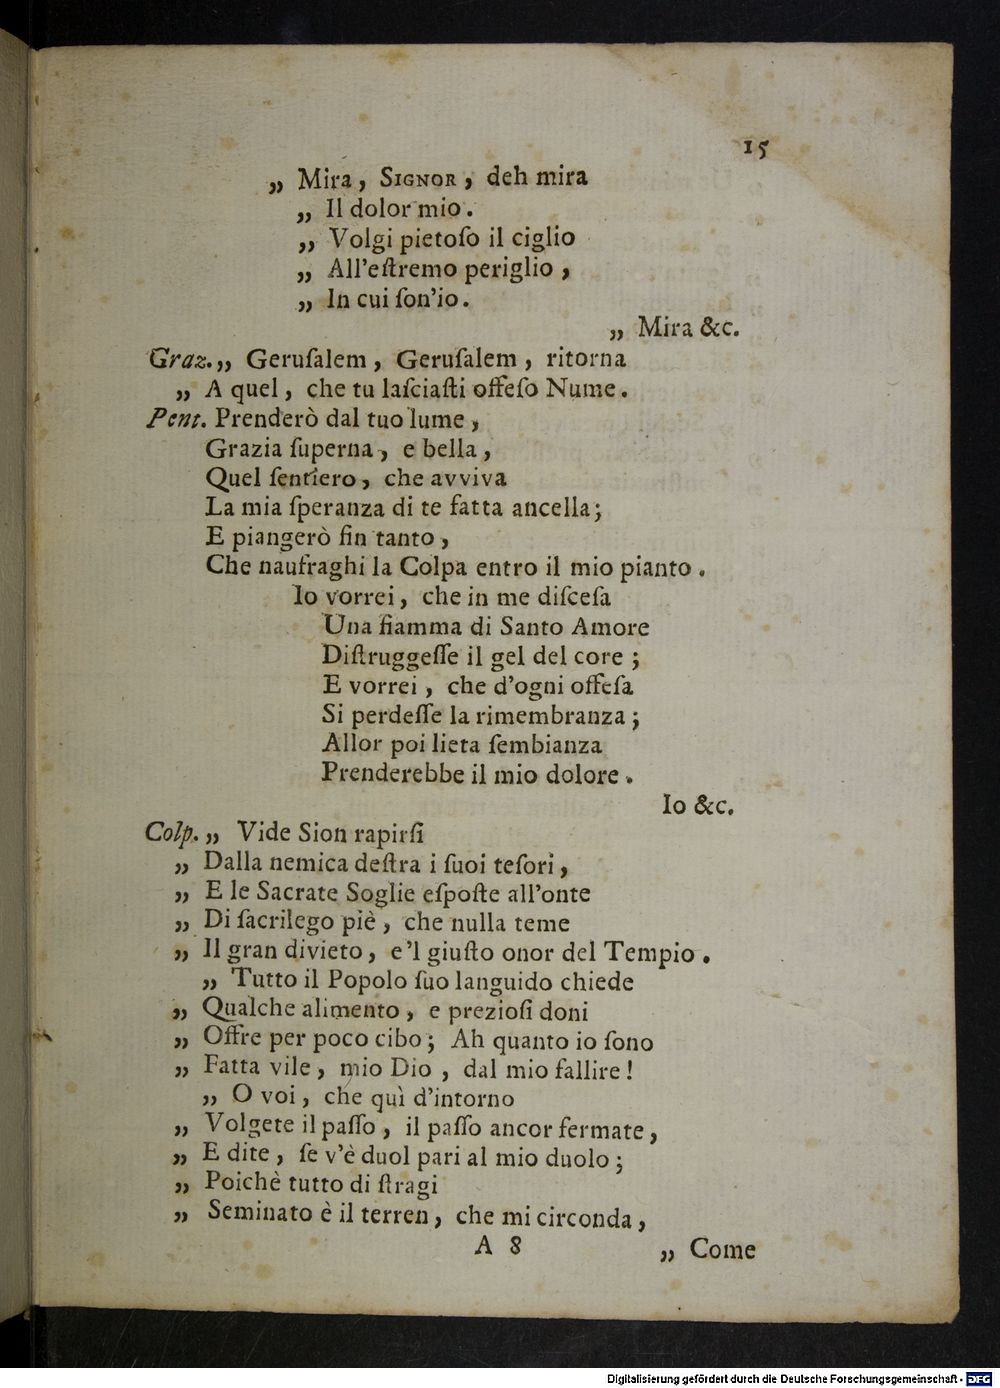 15
„ Mira, SIGNOR, deh mira
„ Il dolor mio.
„ Volgi pietoſo il ciglio
„ All'eſtremo periglio,
„ In cui ſon'io.
„ Mira &c.
Graz.„ Geruſalem, Geruſalem, ritorna
„ A quel, che tu laſciaſti offeſo Nume.
Pent. Prenderò dal tuo lume,
Grazia ſuperna, e bella,
Quel ſentiero, che avviva
La mia ſperanza di te fatta ancella;
E piangerò fin tanto,
Che naufraghi la Colpa entro il mio pianto.
Io vorrei, che in me diſceſa
Una fiamma di Santo Amore
Diſtruggeſſe il gel del core;
E vorrei, che d'ogni offeſa
Si perdeſſe la rimembranza;
Allor poi lieta ſembianza
Prenderebbe il mio dolore.
Io &c.
Colp.„ Vide Sion rapirſi
„ Dalla nemica deſtra i ſuoi teſori,
„ E le Sacrate Soglie eſpoſte all'onte
„ Di ſacrilego piè, che nulla teme
„ Il gran divieto, e'l giuſto onor del Tempio.
„ Tutto il Popolo ſuo languido chiede
„ Qualche alimento, e prezioſi doni
„ Offre per poco cibo; Ah quanto io ſono
„ Fatta vile, mio Dio, dal mio fallire!
„ O voi, che quì d'intorno
„ Volgete il paſſo, il paſſo ancor fermate,
„ E dite, ſe v'è duol pari al mio duolo;
„ Poichè tutto di ſtragi
„ Seminato è il terren, che mi circonda,
A 8 „ Come
Digitalisierung gefördert durch die Deutsche Forschungsgemeinschaft - DFG